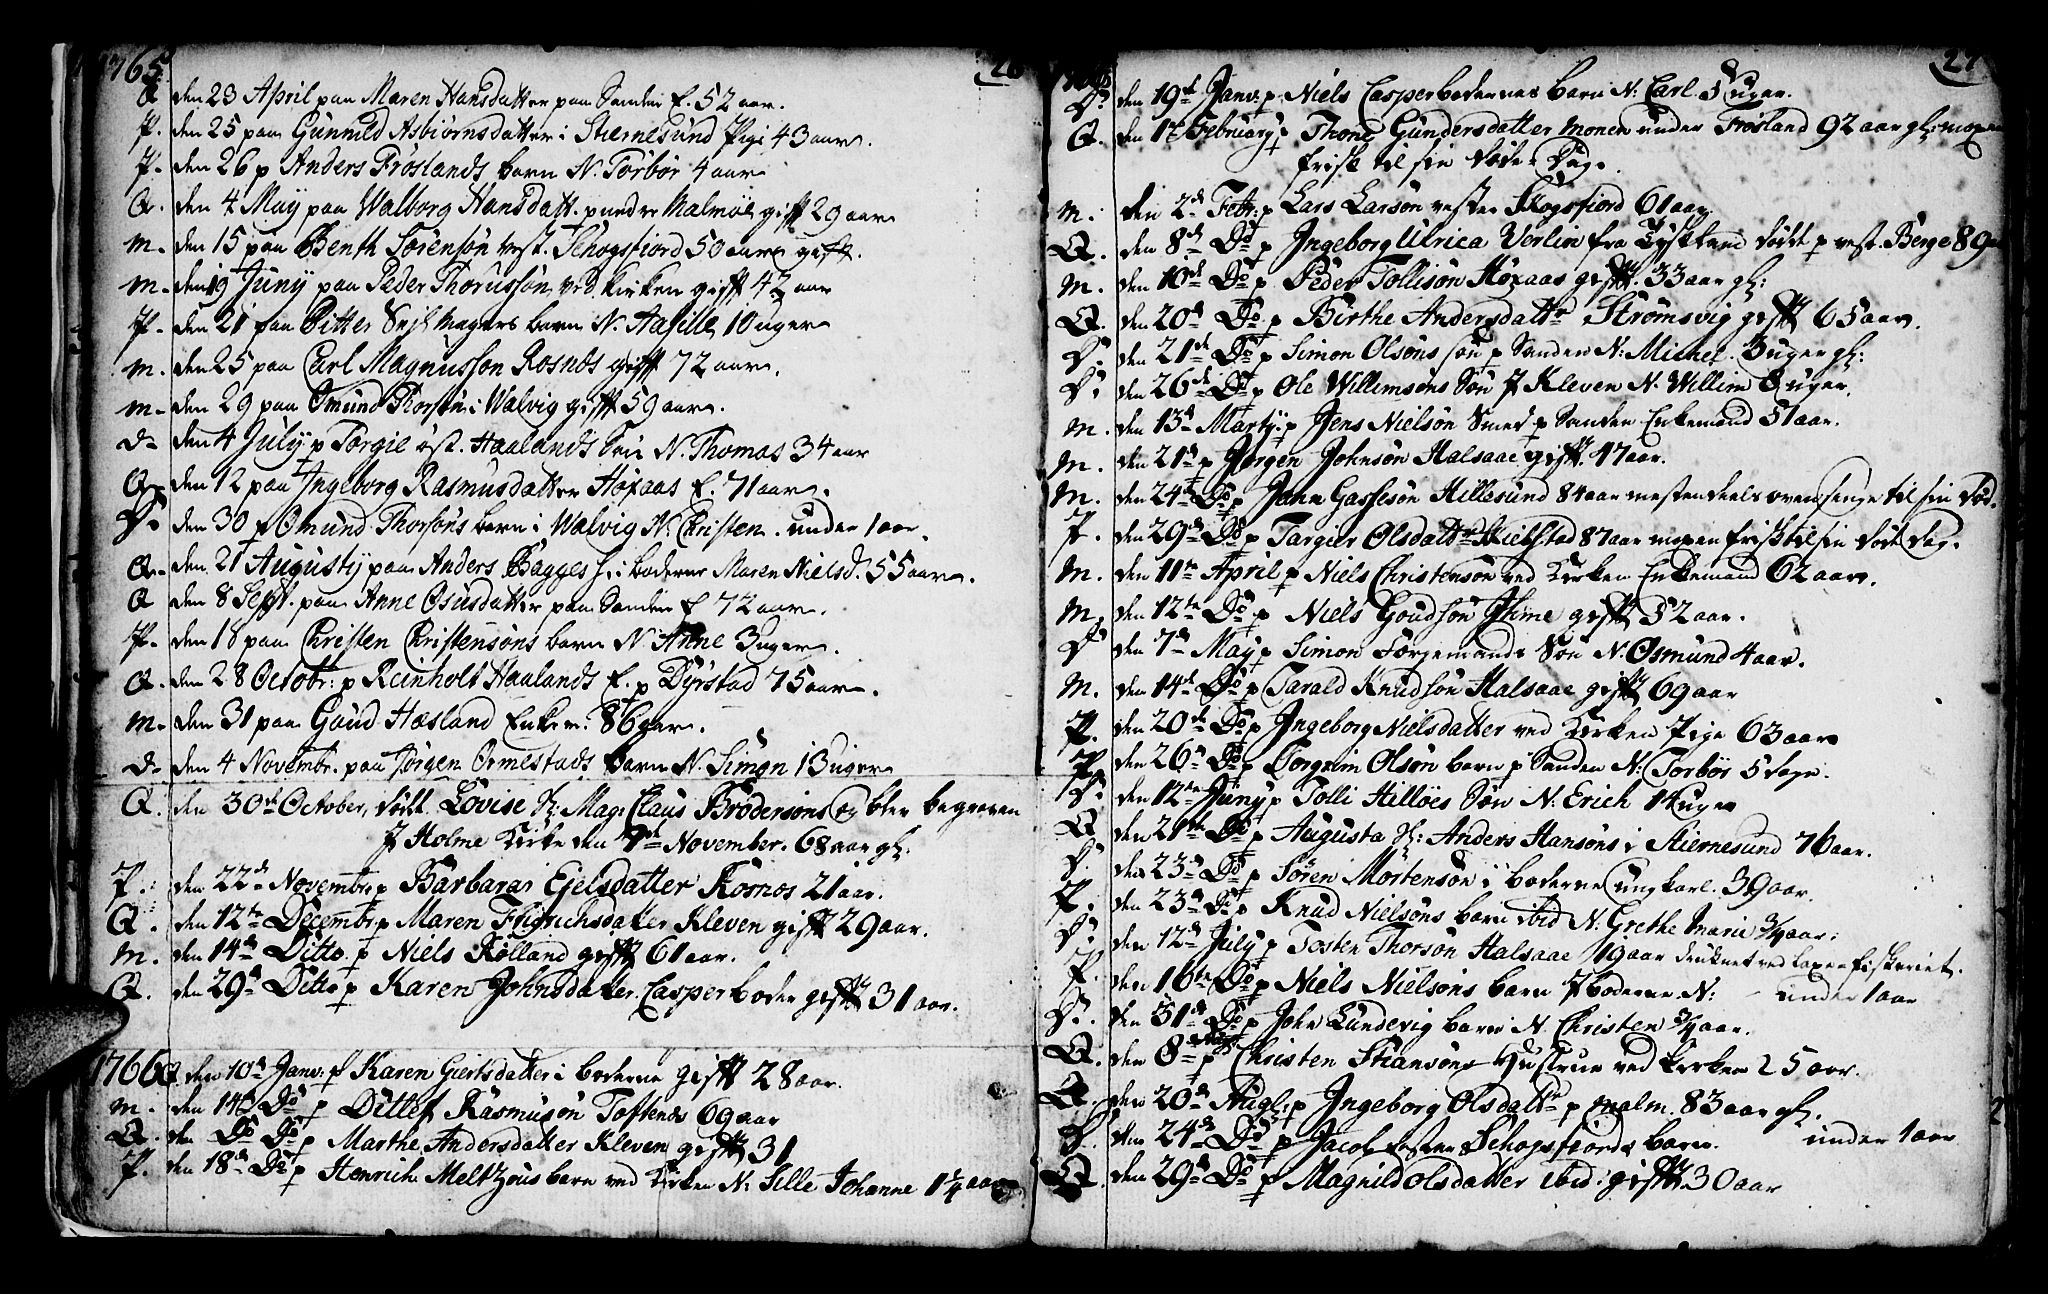 1765. 26
Q den 23 April paa Maren Hansdatter paa Sanden E. 52 aar.
P. den 25 paa Gunnild Asbiörnsdatter i Stiernesund Pigi 43 aar.
P. den 26 p Anders Fröslands barn N. Torbör 4 aar
Q. den 4 May paa Walborg Hansdatt. Malmöe gift 29 aar
M. den 15 paa Benth Sörensön vest. Schogsfiord 50 aar gift.
M. den 19 Juny paa Peder Thorussön ved Kirken gift 42 aar
P. den 21 paa Pitter barn N. Aasille 10 uger
M. den 25 paa Carl Magnusson Rosnes gift 72 aar.
M. den 29 paa Omund Thorsön i Walvig gift 59 aar.
D. den 4 July p Torgie öst. Haalands N. Thomas 34 aar
Q. den 12 paa Ingeborg Rasmusdatter Höxaas E. 71 aar.
D. den 30 p Omund Thorsöns barn i Walvig N. Christen. under 1 aar.
Q. den 21 Augusty paa Anders Bagges H. i boderne Maren Nielsd. 55 aar.
Q den 8 Sept. paa Anne Osusdatter paa Sanden E 72 aar.
P. den 18 paa Christen Christensöns barn N. Anne 3 uger.
Q. den 28 Octobr: p Reinholt Haalands E. p Dyrstad 75 aar.
M. den 31 paa Goud Hæsland Enkem. 86 aar.
D. den 4 Novembr. paa Jörgen Ormestads barn N. Simon 13 uger
Q. den 30te October, död Lovise H: Mag: Claus Brödersöns og blev begraven
J Holme Kirke den 7de November. 68 aar gl.
P. den 22de Novembr: p Barbara Ejelsdatter Rosnos 21 aar.
Q. den 12te Decembr: p Maren Fridrichsdatter Kleven gift 29 aar.
M. den 14de Ditto p Niels Rölland gift 61 aar.
Q. den 29de Ditto p Karen Johnsdatter Casperboder gift 31 aar.
1766 Q den 10de Janv: p Karen Giertsdatter i boderne gift 28 aar.
M. den 14de Do p Ditlef Rasmusön Toftenes 69 aar
Q. den Do Do p Marthe Andersdatter Kleven gift 31
P. den 18de Do p Henrich Meltzous barn ved Kirken N: Sille Johanne 1 1/4 aar
1766 27
D. den 19de Janv: p Niels Casperbodernes barn N: Carl. 5 uger.
Q. den 1te February p Thone Gundersdatter Monen under Frösland 92 aar gl:
frisk til sin döde Dag.
M. den 2de Febr: p Lars Larsön vester Skogsfiord 61 aar
Q. den 8de Do p Ingeborg Ulrica Verlin fra Tyskland född p vest. Berge 89
M. den 10de Do p Peder Tollisön Höxaas gift 33 aar gl:
Q. den 20de Do p Birthe Andersdatter Strömsvig gift 65 aar.
D. den 21de Do p Simon Olsöns sön p Sanden N: Michel. 3 uger gl:
D. den 26de Do p Ole Willimsöns Sön J Kleven N. Willim 8 uger.
M. den 13de Marty p Jens Nielsön Smed p Sanden Enkemand 51 aar.
M. den 21de p Jörgen Johnsön Halsaae gift 47 aar.
M. den 24de Do p Jann Gassesön Hillesund 84 aar mestendeels til sin Död.
P. den 29de Do p Targier Olsdatter Skielstad 87 aar frisk til sin döde Dag.
M. den 11te April p Niels Christensön ved Kirken Enkemand 62 aar.
M. den 12te Do p Niels Goudsön Ihme gift 52 aar.
D den 7de May p Simon Færgemands Sön N. Osmund 4 aar.
M. den 14de Do p Tarald Knudsön Halsaae gift 69 aar
P. den 20de Do p Ingeborg Nielsdatter ved Kirken Pige 63 aar
P. den 26de Do p Torgrim Olsön barn p Sanden N: Torbör 5 dage.
D. den 12te Juny p Tolli Hillöes Sön N. Erich 14 uger
Q. den 21de Do p Augusta H: Anders Hansöns i Stiernesund 76 aar.
D. den 23de Do p Sören Mortensön i boderne Ungkarl. 39 aar.
P. den 23de Do p Knud Nielsöns barn ibid N. Grethe Marie 3/4 aar:
D. den 12te July p Tosten Thorsön Halsaae 19 aar druknet ved Laxe fiskeriet.
P. den 16te Do p Niels Nielsöns barn J boderne. N: - under 1 aar
D. den 31de Do p John Lundevig barn N. Christen 3/4 aar.
Q. den 8de p Christen Stiansöns Hustrue ved Kirken 25 aar.
Q. den 20de Aug: p Ingeborg Olsdatter p Malm. 83 aar gl.
D. den 24de Do p Jacob Schogsfiords barn. under 1 aar
Q. den 29de Do p Magnild Olsdatter ibid: gift 30 aar